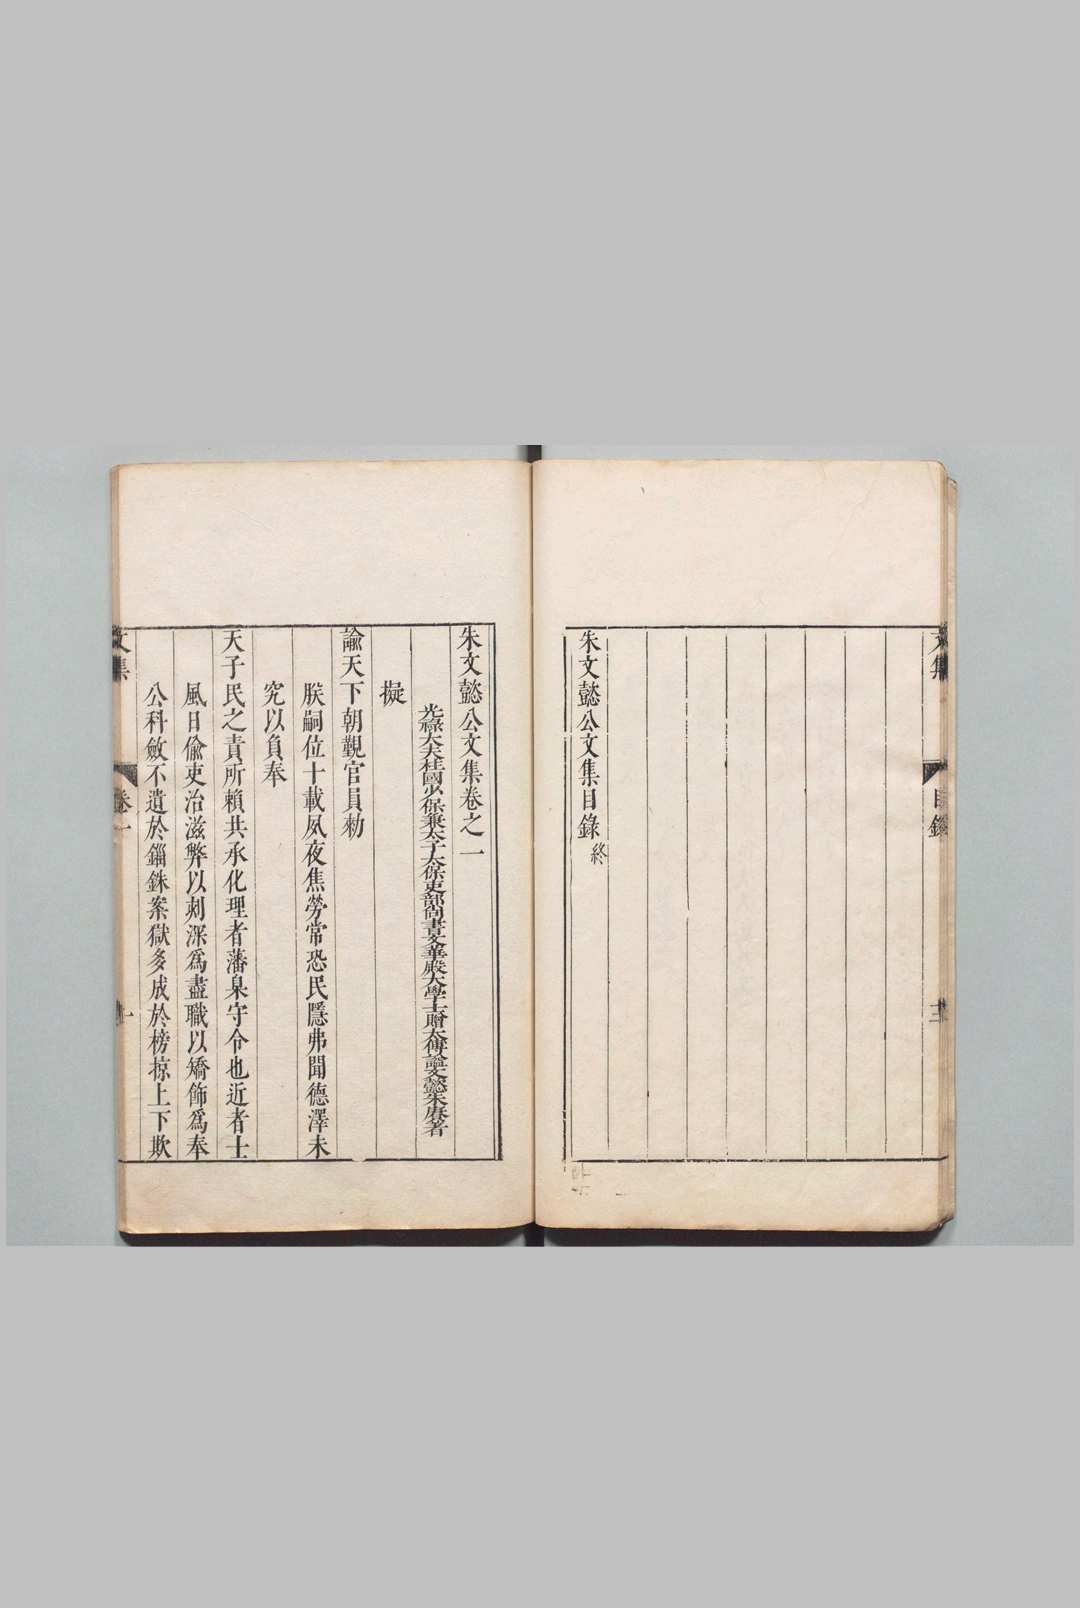 朱文懿公文集目錄終
朱文懿公文集卷之一
光祿大夫柱國少保兼太子太保吏部尚書文華殿大學士贈太傅諡文懿朱賡著
擬
諭天下朝覲官員勑
朕嗣位十載夙夜焦勞常恐民隱弗聞德澤未
究以負奉
天子民之責所賴共承化理者藩臬守令也近者士
風日偷吏治滋弊以刻深爲盡職以矯飾爲奉
公科斂不遺於錙銖案獄多成於榜掠上下欺
文集
卷一
一
文集
目錄